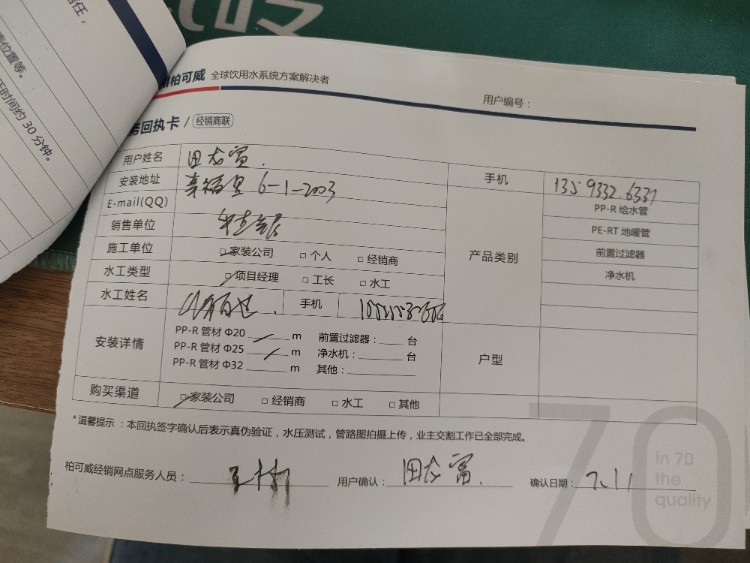 责任,
位置等。
时间约30分钟。
柏可威 全球饮用水系统方案解决者
用户编号：
回执卡 / 经销商联
用户姓名 手机 1359332 6337
安装地址 幸福里 6-1-2003
E-mail(QQ)
销售单位
施工单位 □家装公司 □个人 □经销商
水工类型 □项目经理 □工长 □水工
水工姓名 手机
产品类别
PP-R 给水管
PE-RT 地暖管
前置过滤器
净水机
安装详情 PP-R 管材 Φ20 m 前置过滤器： 台
PP-R 管材 Φ25 m 净水机： 台
PP-R 管材 Φ32 m 其他：
户型
购买渠道 □家装公司 □经销商 □水工 □其他
*温馨提示：本回执签字确认后表示真伪验证，水压测试，管路图拍摄上传，业主交割工作已全部完成。
柏可威经销网点服务人员： 用户确认： 确认日期： 7.11
70
In 70
the
quality